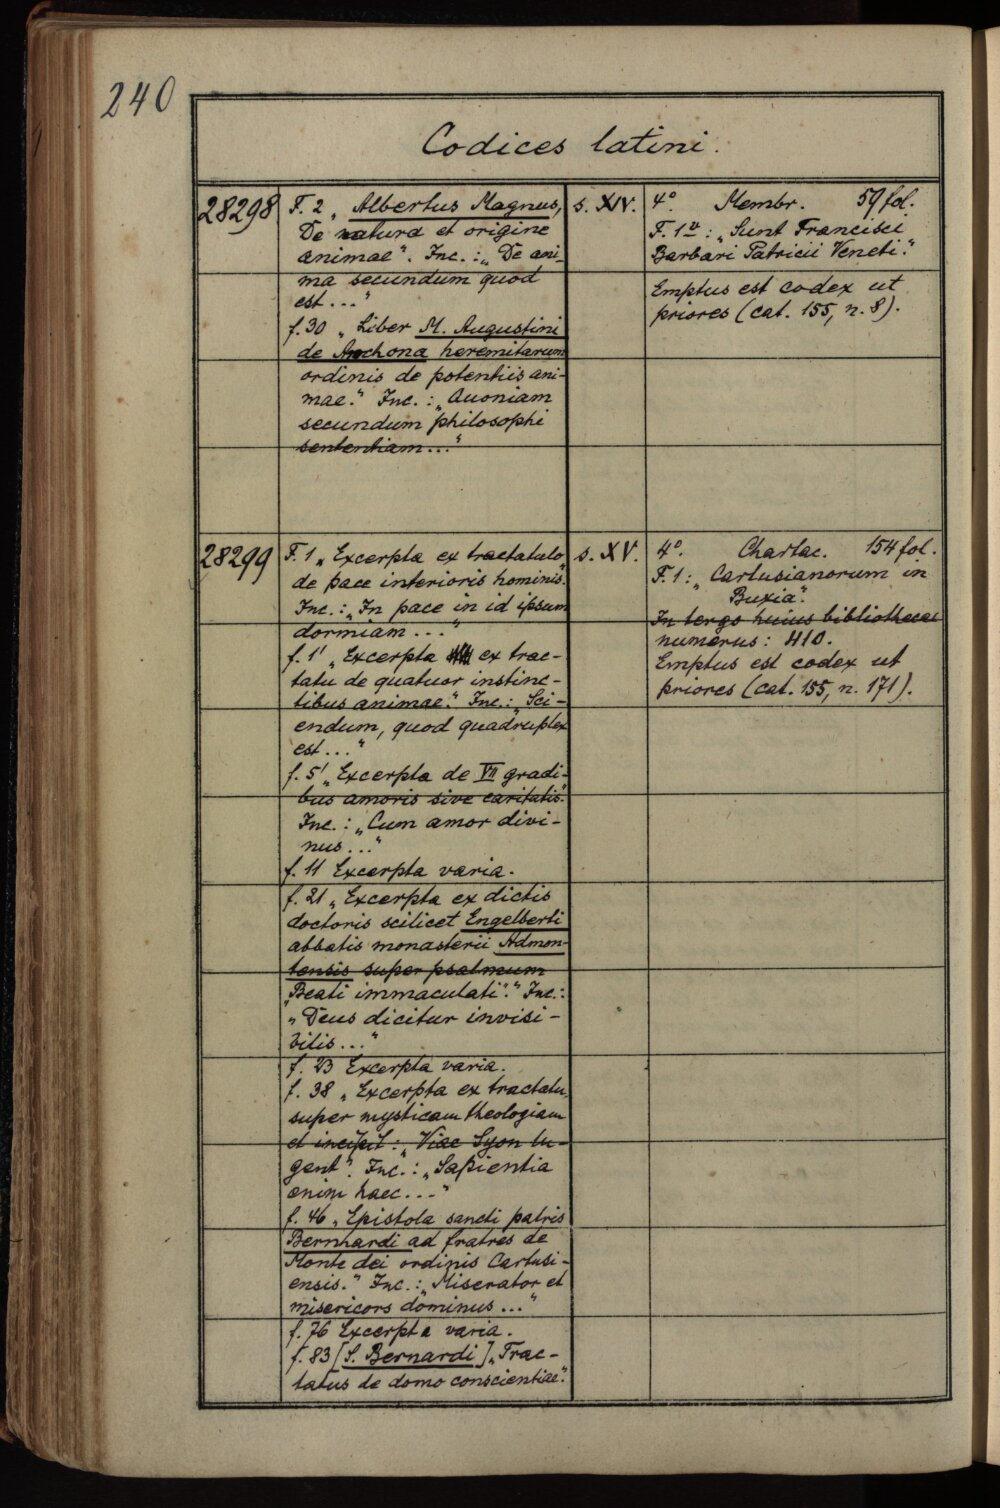 240
Codices latini.
28298
F. 2 „Albertus Magnus,
De natura et origine
animae“. Inc.: „De ani-
ma secundum quod
est...“
f. 30 „Liber M. Augustini
de Anchona heremitarum
ordinis de potentiis ani-
mae.“ Inc.: „Quoniam
secundum philosophi
sententiam...“
s. XIV.
4° Membr. 59 fol.
F. 1v: „Sunt Francisci
Barbari Patricii Veneti.“
Emptus est codex ut
priores (cat. 155, n. 8).
28299
F. 1 „Excerpta ex tractatulo
de pace interioris hominis.“
Inc.: „In pace in id ipsum
dormiam...“
f. 1' „Excerpta ex trac-
tatu de quatuor instinc-
tibus animae.“ Inc.: „Sci-
endum, quod quadruplex
est...“
f. 5' „Excerpta de VII gradi-
bus amoris sive caritatis.“
Inc.: „Cum amor divi-
nus...“
f. 11 Excerpta varia.
f. 21 „Excerpta ex dictis
doctoris scilicet Engelberti
abbatis monasterii Admon-
tensis super psalmum
„Beati immaculati“.“ Inc.:
„Deus dicitur invisi-
bilis...“
f. 23 Excerpta varia.
f. 38 „Excerpta ex tractatu
super mysticam theologiam
et incipit: „Viae Syon lu-
gent“. Inc.: „Sapientia
enim haec...“
f. 46 „Epistola sancti patris
Bernhardi ad fratres de
Monte dei ordinis Cartusi-
ensis.“ Inc.: „Miserator et
misericors dominus...“
f. 76 Excerpta varia.
f. 83 [S. Bernardi] „Trac-
tatus de domo conscientiae“.
s. XV.
4°. Chartac. 154 fol.
F. 1: „Cartusianorum in
Buxia“.
In tergo huius bibliothecae
numerus: 410.
Emptus est codex ut
priores (cat. 155, n. 171).